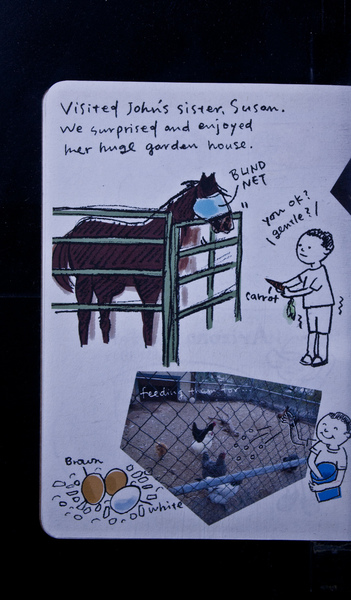 Visited John's sister, Susan.
We surprised and enjoyed
her huge garden house.
BLIND
NET
you ok?
gentle?!
carrot
feeding
Brown
white